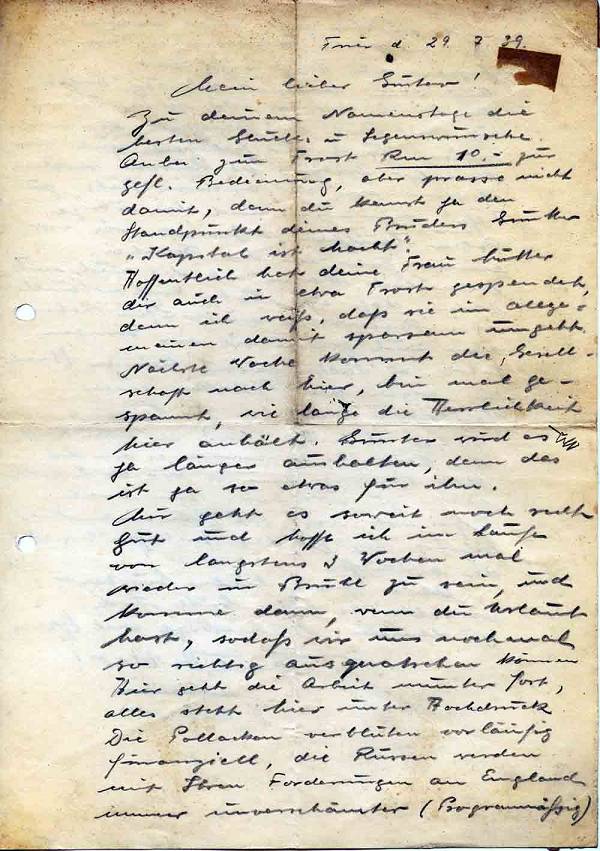 Trier d. 29. 7. 39.
Mein lieber Günter!
Zu deinem Namenstage die
besten Glück- u Segenswünsche.
Anbei zum Trost Rm 10.- zur
gefl. Bedienung, aber prasse nicht
damit, denn du kennst ja den
Standpunkt deines Bruders Günter
"Kapital ist Macht".
Hoffentlich hat deine Frau Mutter
dir auch in etwa Trost gespendet,
denn ich weiß, daß sie im allge-
meinen damit sparsam umgeht.
Nächste Woche kommt die Gesell-
schaft nach hier, bin mal ge-
spannt, wie lange die Herrlichkeit
hier anhält. Günter wird es
ja länger aushalten, denn das
ist ja so etwas für ihn.
Mir geht es soweit noch recht
gut und hoffe ich im Laufe
von längstens 3 Wochen mal
wieder in Brühl zu sein, und
komme dann, wenn du Urlaub
hast, sodaß wir uns nochmal
so richtig ausquatschen können
Hier geht die Arbeit munter fort,
alles steht hier unter Hochdruck
Die Pollacken verbluten vorläufig
finanziell, die Russen werden
mit Ihren Forderungen an England
immer unverschämter (Programmässig)